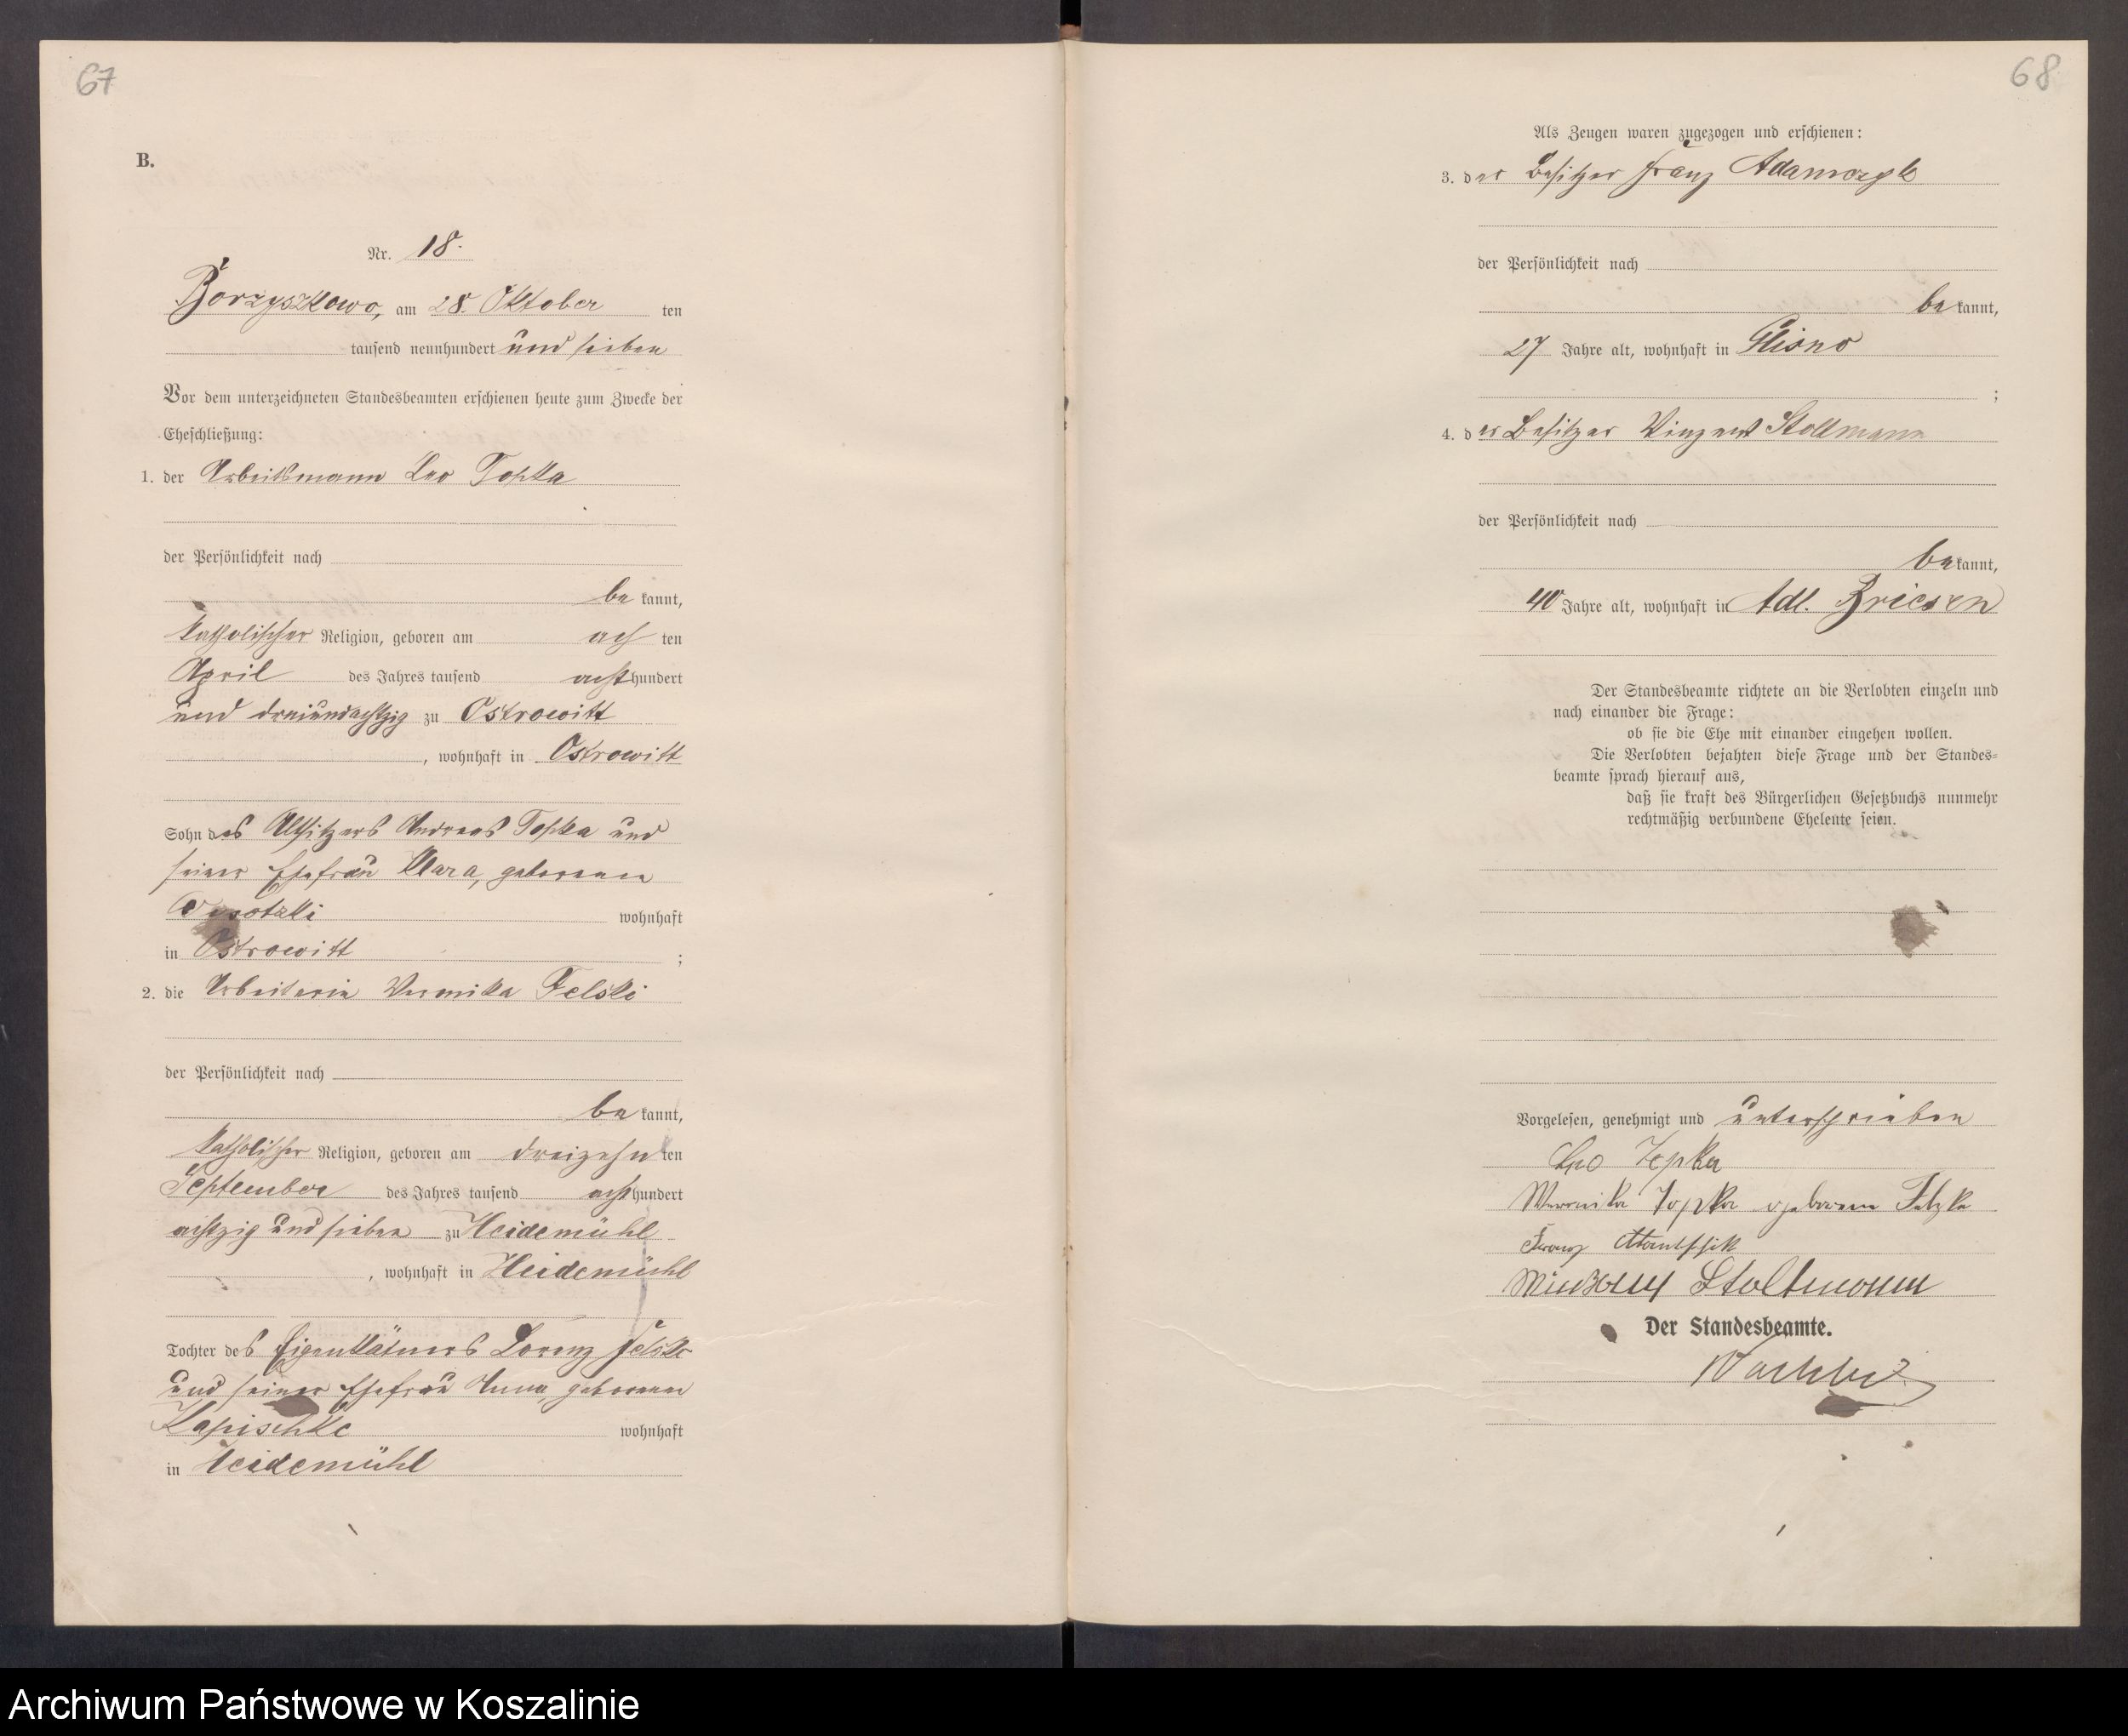 67
B.
Nr. 18.
Borzyszkowo, am 28. Oktober ten
tausend neunhundert und sieben
Vor dem unterzeichneten Standesbeamten erschienen heute zum Zwecke der
Eheschließung:
1. der Arbeitsmann Leo Topka
der Persönlichkeit nach
be kannt,
katholischer Religion, geboren am ach ten
April des Jahres tausend acht hundert
und dreiundachtzig zu Ostrowitt
, wohnhaft in Ostrowitt
Sohn des Altsitzers Andreas Topka und
seiner Ehefrau Klara, geborenen
wohnhaft
in Ostrowitt ;
2. die Arbeiterin Weronika Felski
der Persönlichkeit nach
be kannt,
katholischer Religion, geboren am dreizehn ten
September des Jahres tausend acht hundert
achtzig und sieben zu Heidemühl
, wohnhaft in Heidemühl
Tochter des Eigenkätners Lorenz Felski
und seiner Ehefrau Anna, geborenen
Kapischke wohnhaft
in Heidemühl
68
Als Zeugen waren zugezogen und erschienen:
3. der Besitzer Franz
der Persönlichkeit nach
be kannt,
27 Jahre alt, wohnhaft in Glisno
;
4. der Besitzer Vinzent Stoltmann
der Persönlichkeit nach
be kannt,
40 Jahre alt, wohnhaft in Adl. Briesen
Der Standesbeamte richtete an die Verlobten einzeln und
nach einander die Frage:
ob sie die Ehe mit einander eingehen wollen.
Die Verlobten bejahten diese Frage und der Standes-
beamte sprach hierauf aus,
daß sie kraft des Bürgerlichen Gesetzbuchs nunmehr
rechtmäßig verbundene Eheleute seien.
Vorgelesen, genehmigt und unterschrieben
Leo Topka
Weronika Topka geborene
Franz
Stoltmann
Der Standesbeamte.
Archiwum Państwowe w Koszalinie